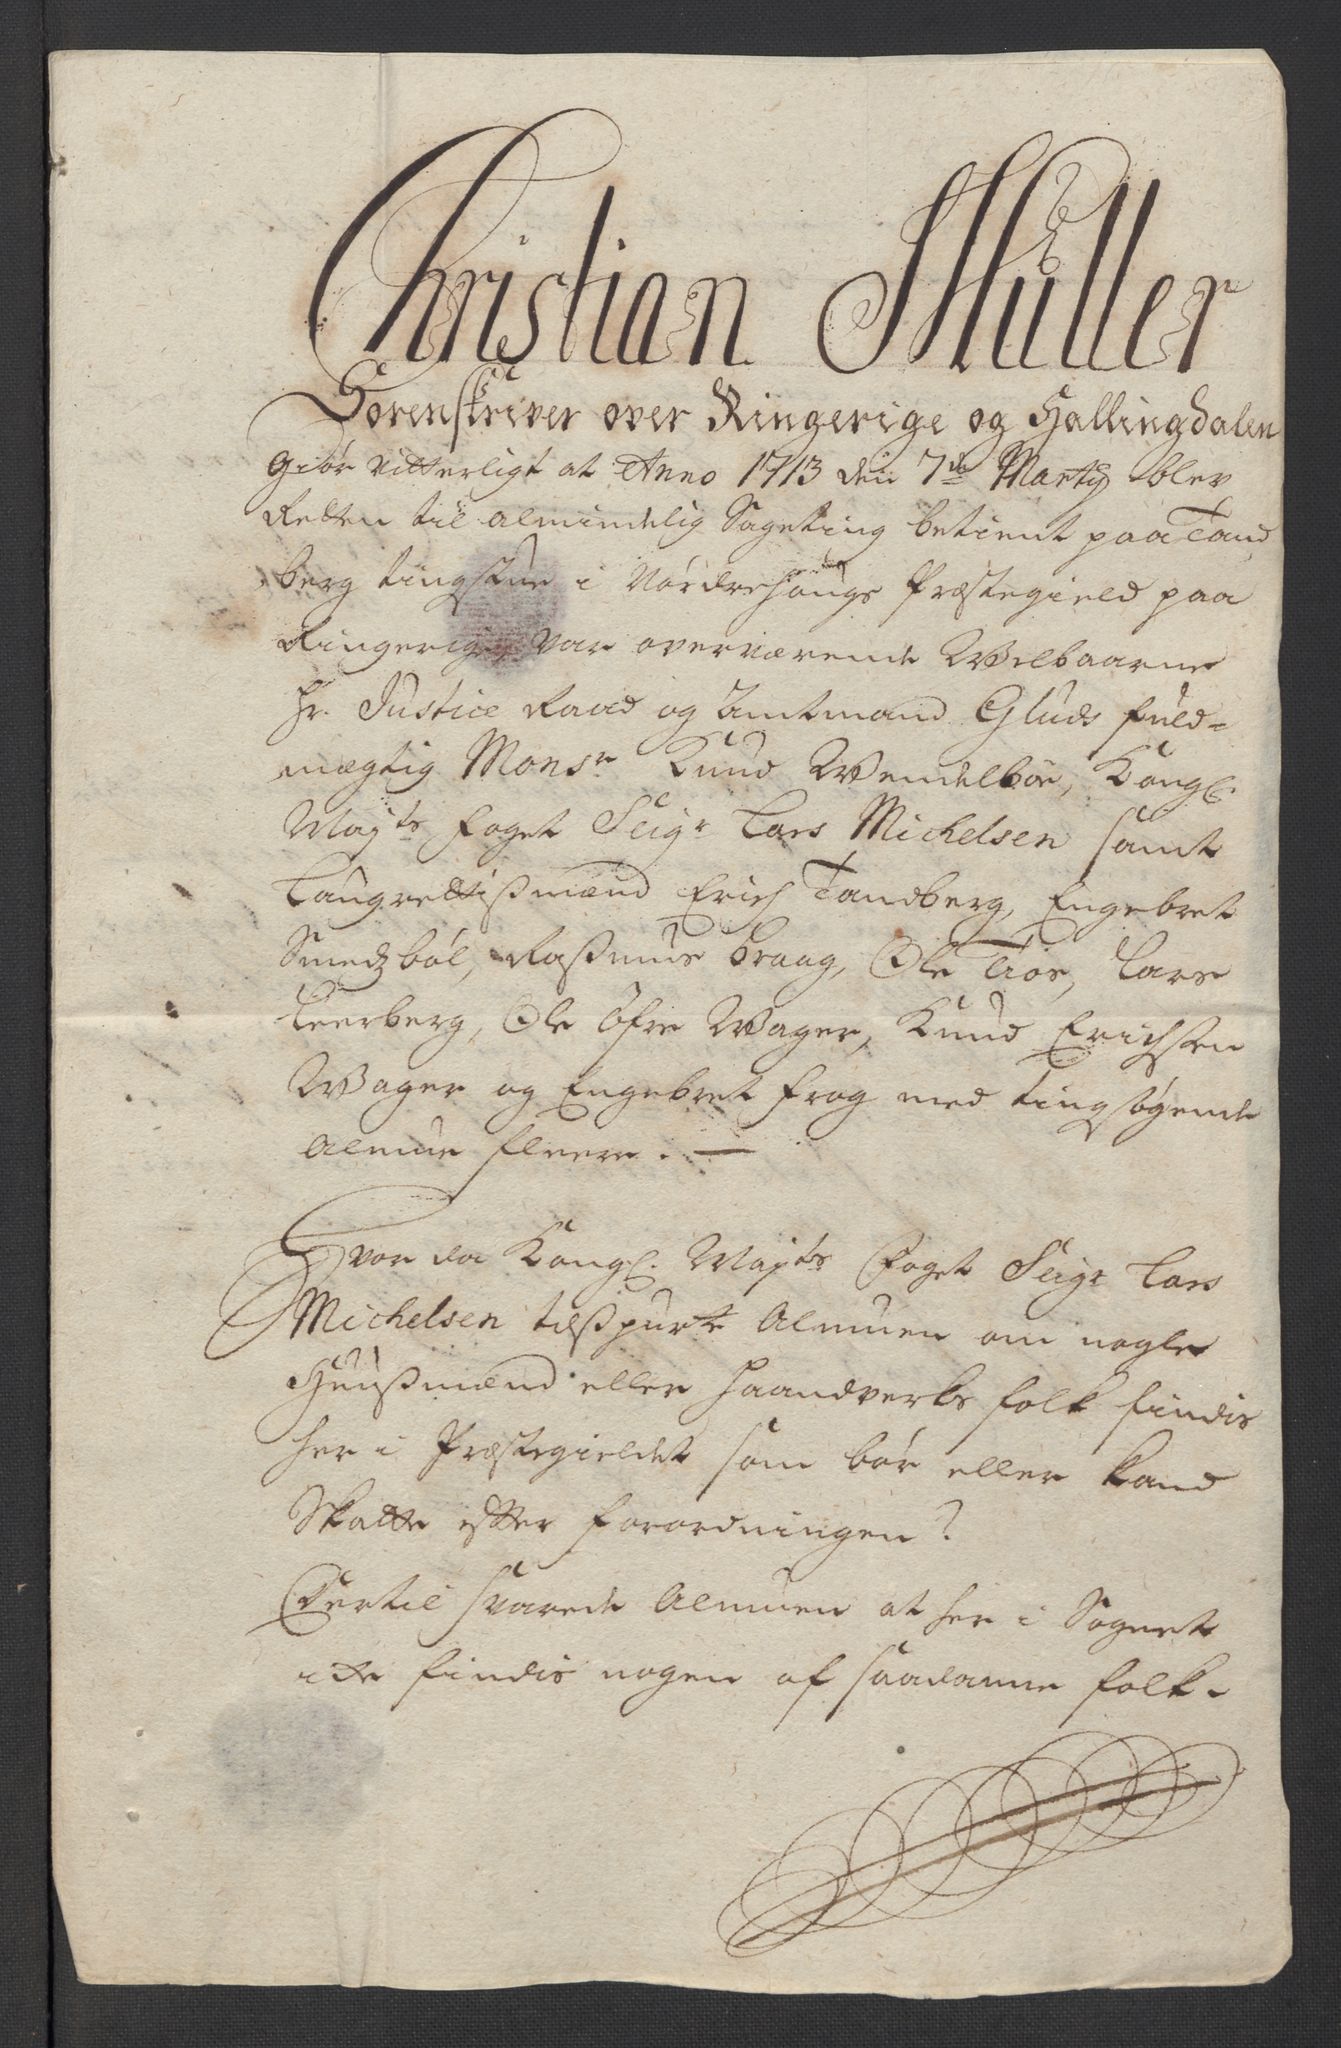 Christian Müller
Sorenskriver over Ringerige og Hallingdalen
Giør vitterligt at Anno 1713 den 7de Martÿ blev
Retten til almindelig Sageting betient paa Tand
berg tingstue i Nordrehougs Præstegield paa
Ringerige, var overværende Welbaarne
Hr. Justice Raad og Amtmand Gluds fuld=
mægtig Monsr Knud Wendelboe, Kongl.
Mayts Foget Seigr Lars Michelsen samt
Laugrettismænd Erich Tandberg, Engebret
Smedzbøl, Rasmus Braag, Ole Tioe, Lars
Leerberg, Ole øfre Wager, Knud Erichsen
Wager og Engebret frog med tingsøgende
Almue fleere. —
Hvor da Kongl. Mayts Foget Seigr Lars
Michelsen tilspurte Almuen om nogle
Huusmænd eller Haandverks folk findis
her i Præstegieldet som bør eller kand
Skatte efter forordningen?
Dertil svarede Almuen at her i Sognet
icke findis nogen af saadanne folk.